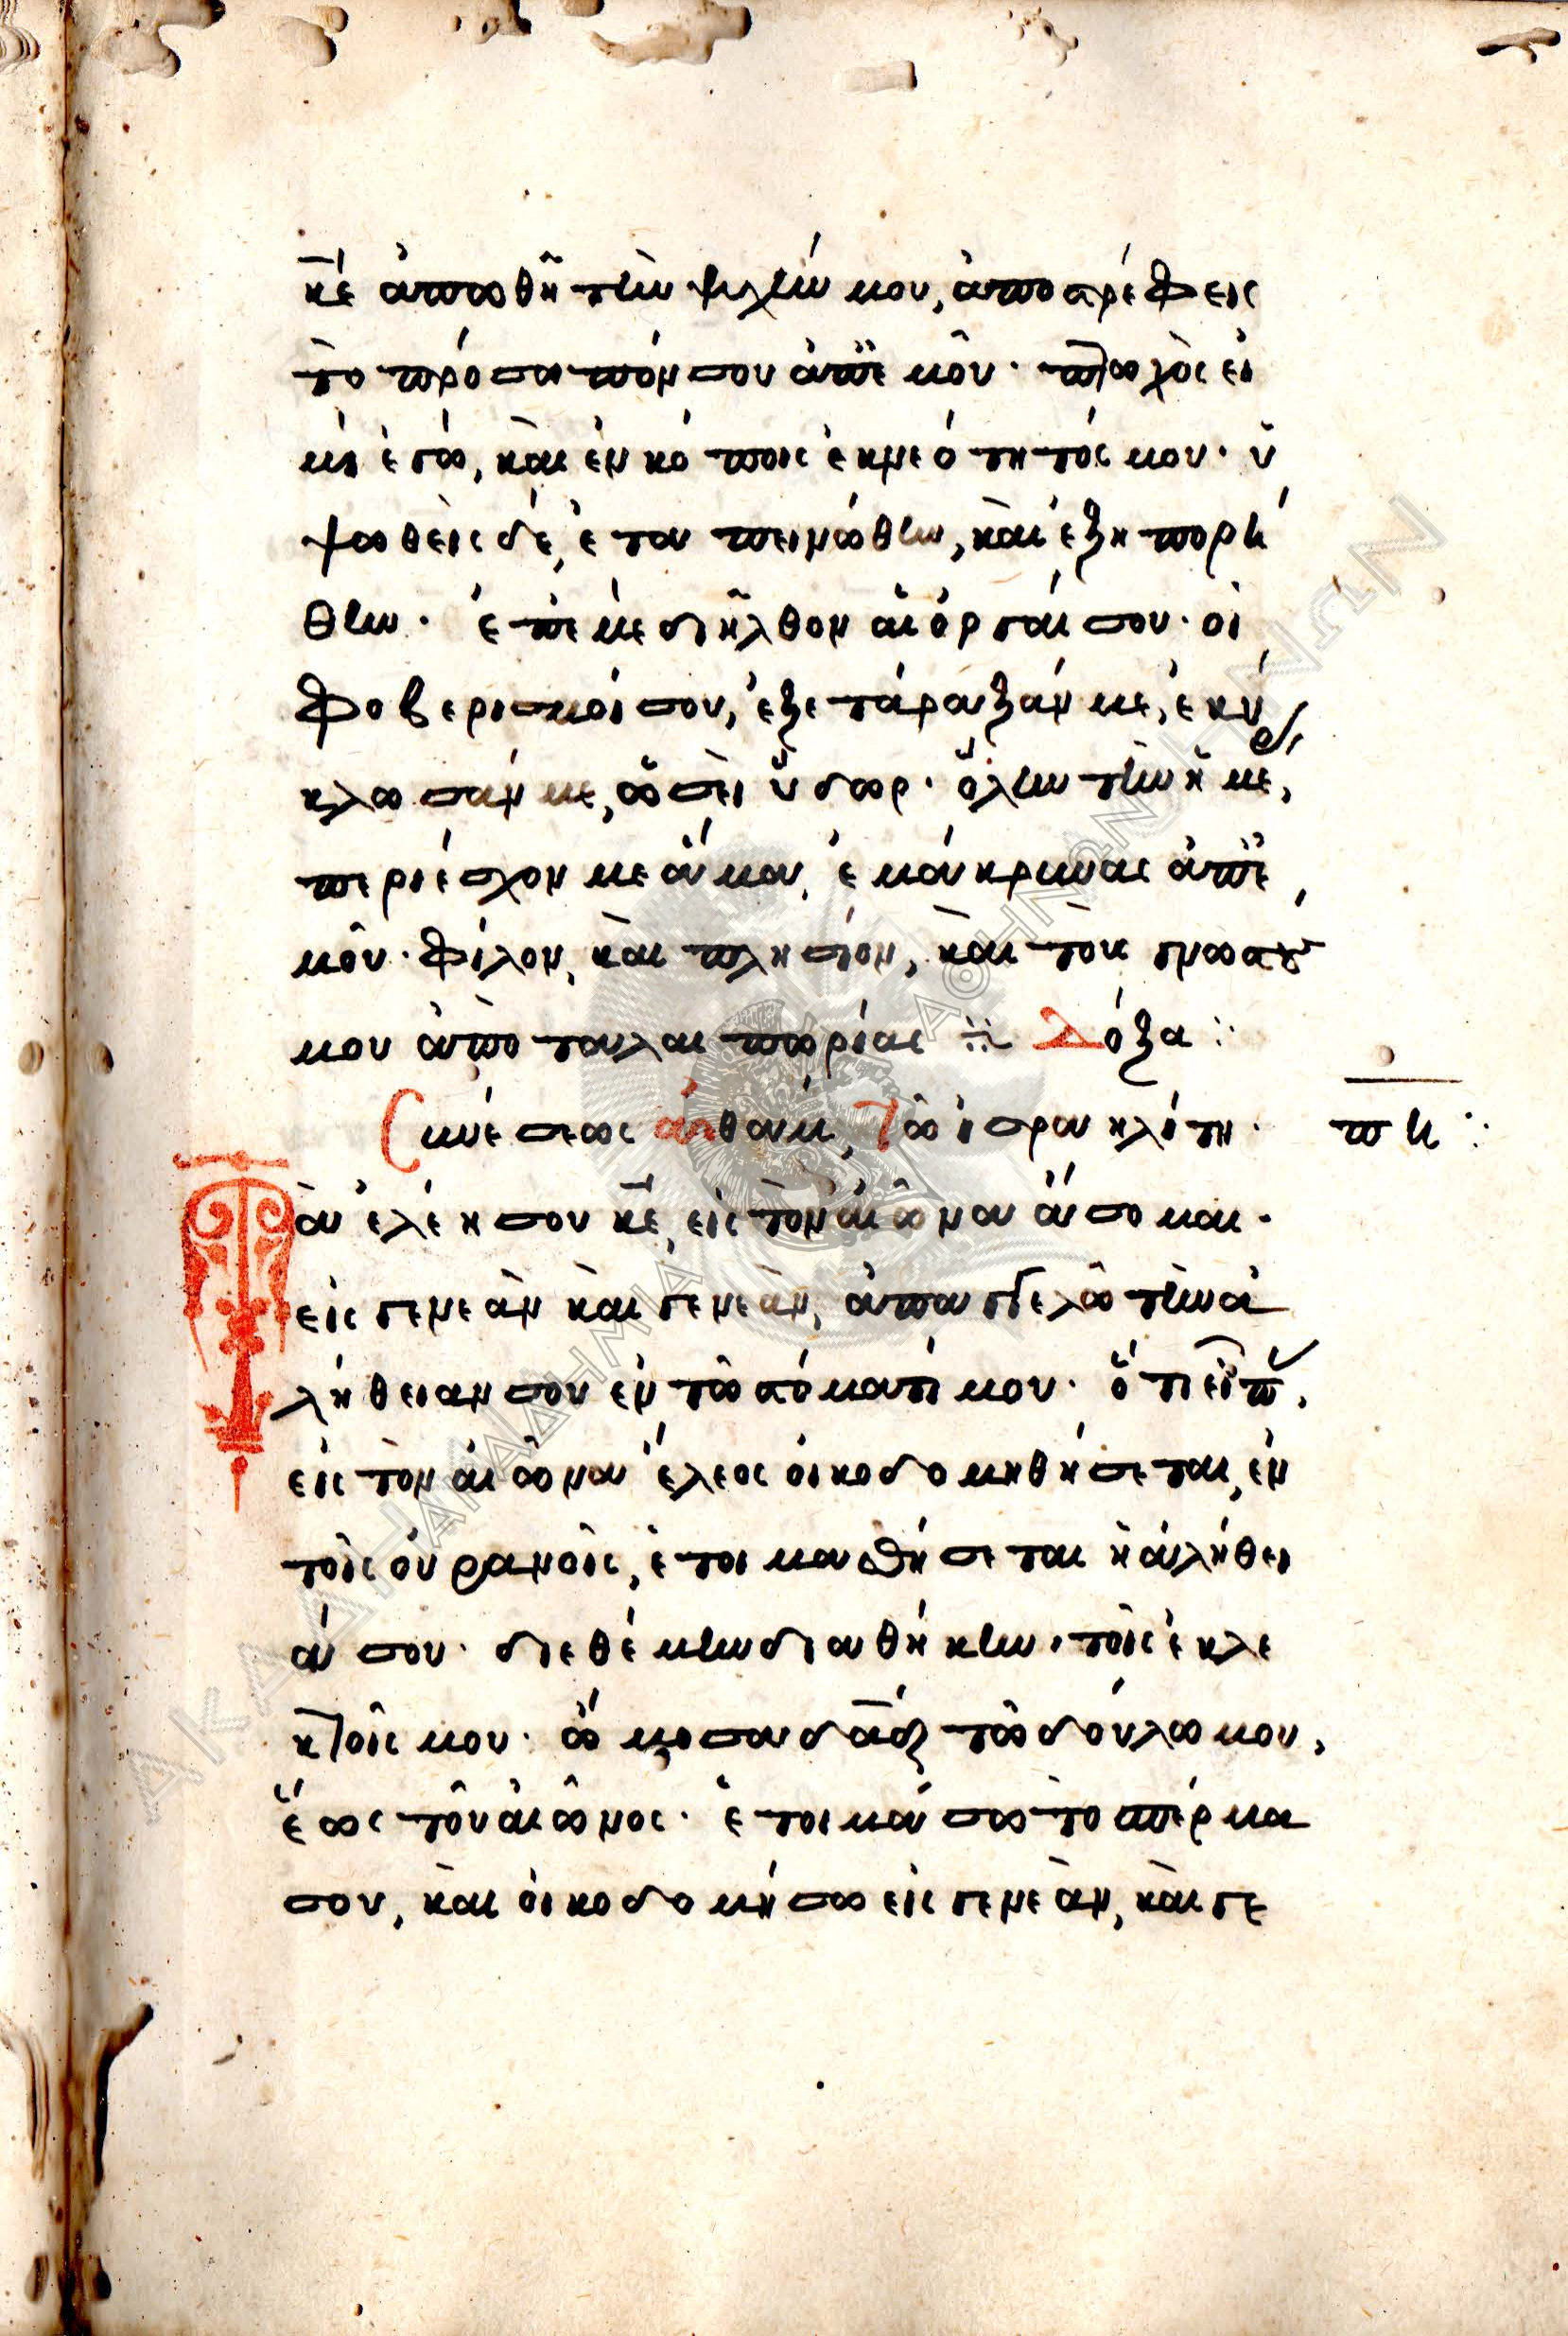 κ̅ε ἀπωθῆ τὴν ψυχήν μου, ἀποστρέφεις
τὸ πρόσωπόν σου ἀπ' ἐμοῦ· πτωχὸς εἰ
μὶ ἐγώ, καὶ ἐν κόποις ἐκ νεότητός μου· ὑ
ψωθεὶς δέ, ἐταπεινώθην, καὶ ἐξηπορή
θην· ἐπ' ἐμὲ διῆλθον αἱ ὀργαί σου· οἱ
φοβερισμοί σου, ἐξετάραξάν με, ἐκύ
κλωσάν με, ὡσεὶ ὕδωρ· ὅλην τὴν ἡμέρ,
περιέσχον με ἅμα, ἐμάκρυνας ἀπ' ἐ
μοῦ· φίλον, καὶ πλησίον, καὶ τοὺς γνωστούς
μου ἀπὸ ταλαιπωρίας ⁘ Δόξα :
Συνέσεως αἰθαμ, Τῶ ἰσραηλίτη· πη :
Τὰ ἐλέη σου κ̅ε, εἰς τὸν αἰῶνα ἄσομαι·
εἰς γενεὰν καὶ γενεὰν, ἀπαγγελῶ τὴν ἀ
λήθειαν σου ἐν τῶ στόματί μου· ὅτι εἶπ,
εἰς τὸν αἰῶνα ἔλεος οἰκοδομηθήσεται, ἐν
τοῖς οὐρανοῖς, ἑτοιμασθήσεται ἡ ἀλήθει
ά σου· διεθέμην διαθήκην, τοῖς ἐκλε
κτοῖς μου· ὤμοσα δα̅δ τῶ δούλω μου,
ἕως τοῦ αἰῶνος· ἑτοιμάσω τὸ σπέρμα
σου, καὶ οἰκοδομήσω εἰς γενεὰν, καὶ γε
ΑΚΑΔΗΜΙΑ ΑΘΗΝΩΝ